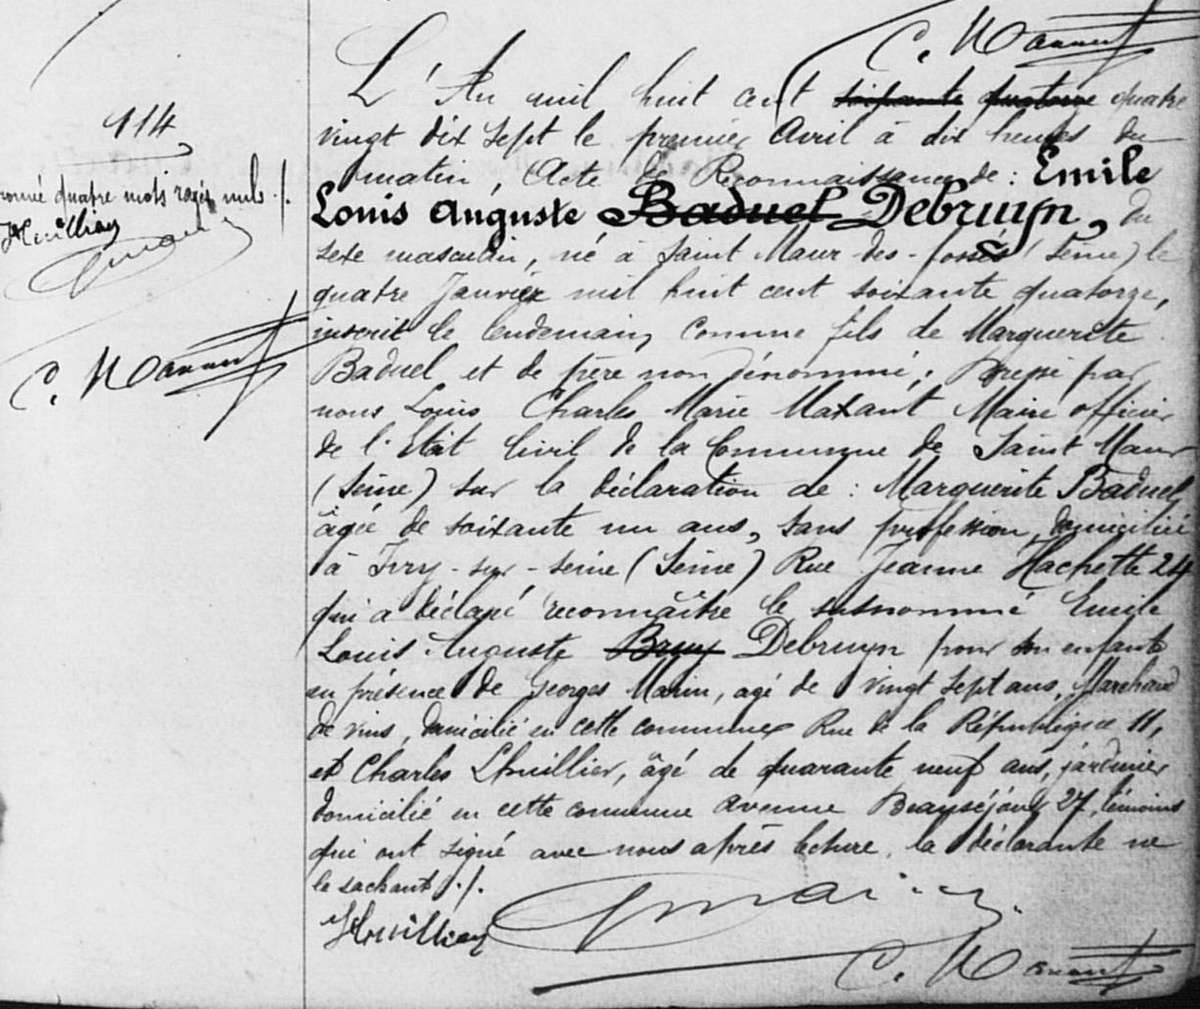 C. Maxant
L'An mil huit cent soixante quatorze quatre
vingt dix sept le premier Avril à dix heures du
matin, Acte de Reconnaissance de : Emile
Louis Auguste Baduel Debruyn, du
sexe masculin, né à Saint Maur des-fossés (Seine) le
quatre Janvier mil huit cent soixante quatorze,
inscrit le lendemain comme fils de Marguerite
Baduel et de père non dénommé. Dressé par
nous Louis Charles Marie Maxant Maire officier
de l'Etat Civil de la Commune de Saint Maur
(Seine) sur la déclaration de : Marguerite Baduel
âgée de soixante un ans, sans profession, domiciliée
à Ivry-sur-Seine (Seine) Rue Jeanne Hachette 24
qui a déclaré reconnaître le susnommé Emile
Louis Auguste Bruy Debruyn pour son enfant
en présence de Georges Marin, agé de vingt sept ans, Marchand
de vins, domicilié en cette commune Rue de la République 11,
et Charles Lhuillier, âgé de quarante neuf ans, jardinier
domicilié en cette commune avenue Beauséjour 27, témoins
qui ont signé avec nous après lecture. la déclarante ne
le sachant ./.
Lhuillier
GMarin
C. Maxant
114
quatre mots rayés nuls ./.
Lhuillier
GMarin
C. Maxant